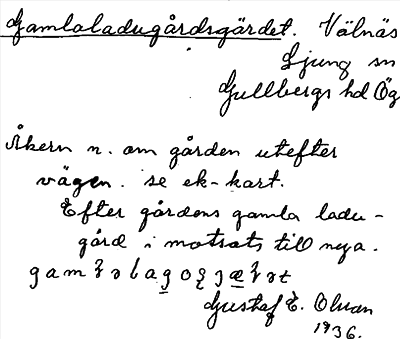 Gamlaladugårdsgärdet. Välnäs
Ljung sn
Gullbergs hd Ög
Åkern n. om gården utefter
vägen. se ek-kart.
Efter gårdens gamla ladu-
gård i motsats till nya.
Gustaf E. Olson
1936.